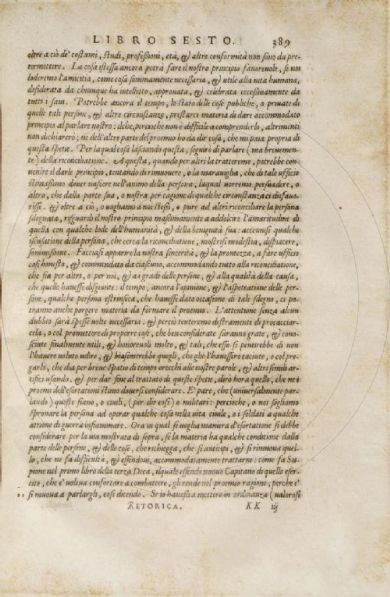 LIBRO SESTO. 389
oltre a ciò de' costumi, studi, professioni, età, & altre conformità non sono da pre-
termettere. La cosa istessa ancora potrà fare il nostro principio fauoreuole, se noi
loderemo l'amicitia, come cosa sommamente necessaria, & utile alla uita humana,
desiderata da chiunque ha intelletto, approuata, & celebrata eccessiuamente da
tutti i saui. Potrebbe ancora il tempo, lo stato delle cose publiche, o priuate di
quelle tali persone, & altre circunstanze, prestarci materia di dare accommodato
principio al parlare nostro: ilche, perche non è difficile a comprenderlo, altrimenti
non dichiarerò; ne dell'altre parti del proemio ho da dir cosa, che non sia propria di
questa spetie. Per la qual cosa lasciando questa, seguirò di parlare (ma breuemen-
te) della riconciliatione. A questa, quando per altri la tratteremo, potrebbe con-
uenire il darle principio, tentando di rimuouere, o la marauiglia, che di tale ufficio
stimassimo douer nascere nell'animo della persona, laqual uorremo persuadere, o
altro, che dalla parte sua, o nostra per cagione di qualche circunstanza ci disfauo-
risse. & oltre a ciò, o uogliamo a noi stessi, o pure ad altri riconciliare la persona
sdegnata, riguardi il nostro principio massimamente a addolcire l'amaritudine di
quella con qualche lode dell'humanità, & della benignità sua: accennisi qualche
scusatione della persona, che cerca la riconciliatione, mostrisi modestia, dispiacere,
sommissione. Facciasi apparere la nostra sincerità, & la prontezza, a fare ufficio
cosi honesto, & commendato da ciascuno, accommodando tutto alla riconciliatione,
che sia per altri, o per noi, & ai gradi delle persone, & alla qualità della causa,
che quelle hauesse disgiunte: il tempo, ancora l'opinione, & l'aspettatione delle per-
sone, qualche persona estrinseca, che hauesse dato occasione di tale sdegno, ci po-
tranno anche porgere materia da formare il proemio. L'attentione senza alcun
dubbio sarà spesse uolte necessaria, & perciò tenteremo destramente di procacciar-
cela, o col promettere di proporre cose, che ben considerate saranno grate, & cono-
sciute finalmente utili, & honoreuoli molto, & tali, che esse si pentirebbe di non
l'hauere uoluto udire, & biasimerebbe quegli, che gliele hauessero taciute, o col pre-
garli, che dia per breue spatio di tempo orecchi alle nostre parole, & altri simili ar-
tifici usando, & per dar fine al trattato di queste spetie, dirò hora quello, che ne i
proemi dell'esortationi stimo douersi considerare. E pare, che (uniuersalmente par-
lando) queste siano, o ciuili, (per dir cosi) o militari: percioche, o noi uogliamo
spronare la persona ad operar qualche cosa nella uita ciuile, o i soldati a qualche
attione di guerra infiammare. Ora in qual si uoglia maniera d'esortatione si debbe
considerare per la uia mostrata di sopra, se la materia ha qualche conditione dalla
parte delle persone, & delle cose, che richiegga, che si anticipi, & si rimuoua quel-
lo, che ne fa difficultà, & essendoui, accommodatamente trattarne: come fa Sci-
pione nel primo libro della terza Deca, ilquale essendo nouuo Capitano di quello eser-
cito, che e' uoleua confortare a combattere, gli rende nel proemio ragione, perche e'
si muoua a parlargli, cosi dicendo. Se io hauessi a mettere in ordinanza (ualorosi
RETORICA. KK iij